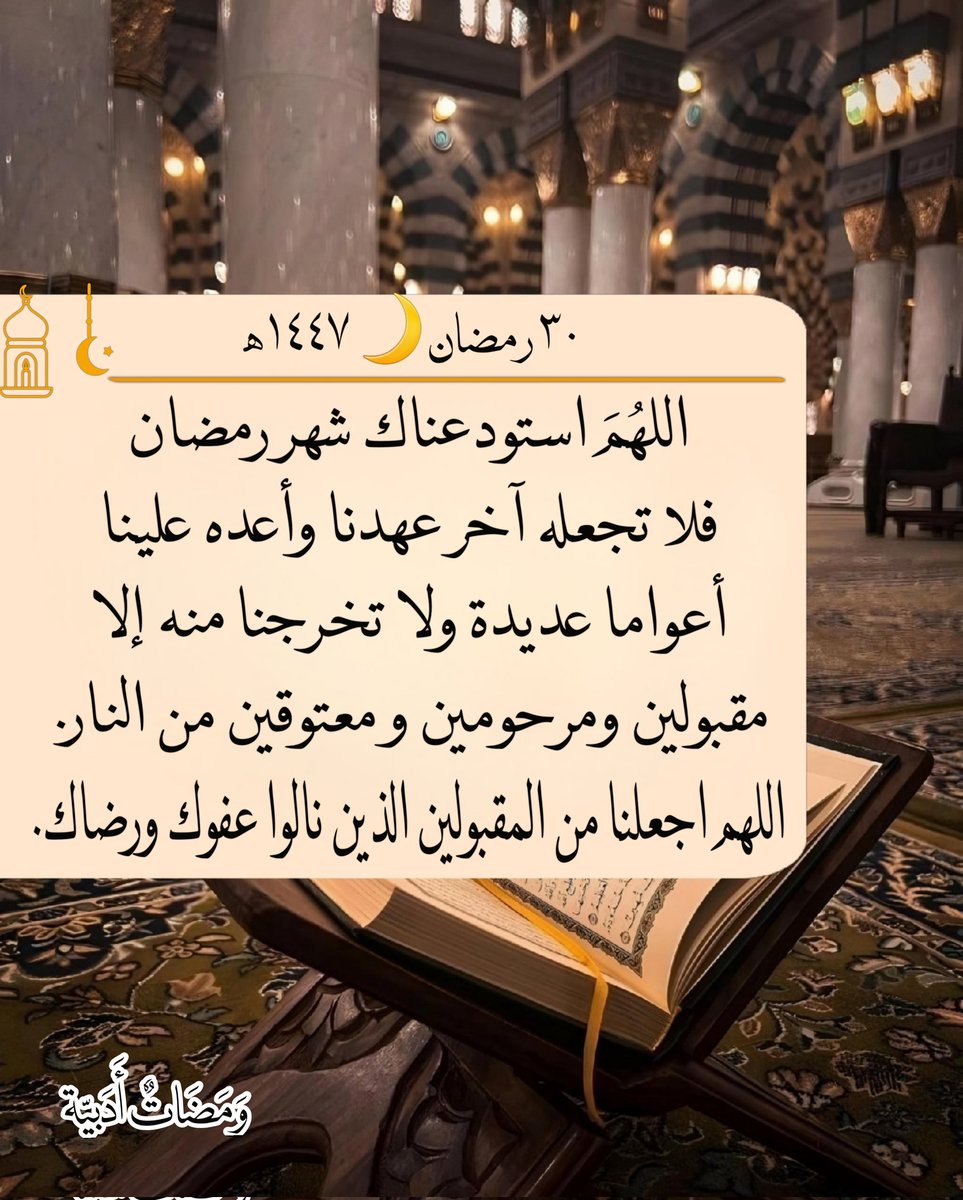 ٣٠ رمضان ١٤٤٧ه
اللهُمَ استودعناك شهر رمضان
فلا تجعله آخر عهدنا وأعده علينا
أعواما عديدة ولا تخرجنا منه إلا
مقبولين ومرحومين ومعتوقين من النار.
اللهم اجعلنا من المقبولين الذين نالوا عفوك ورضاك.
وَمَضَاتٌ أَدَبِيّة